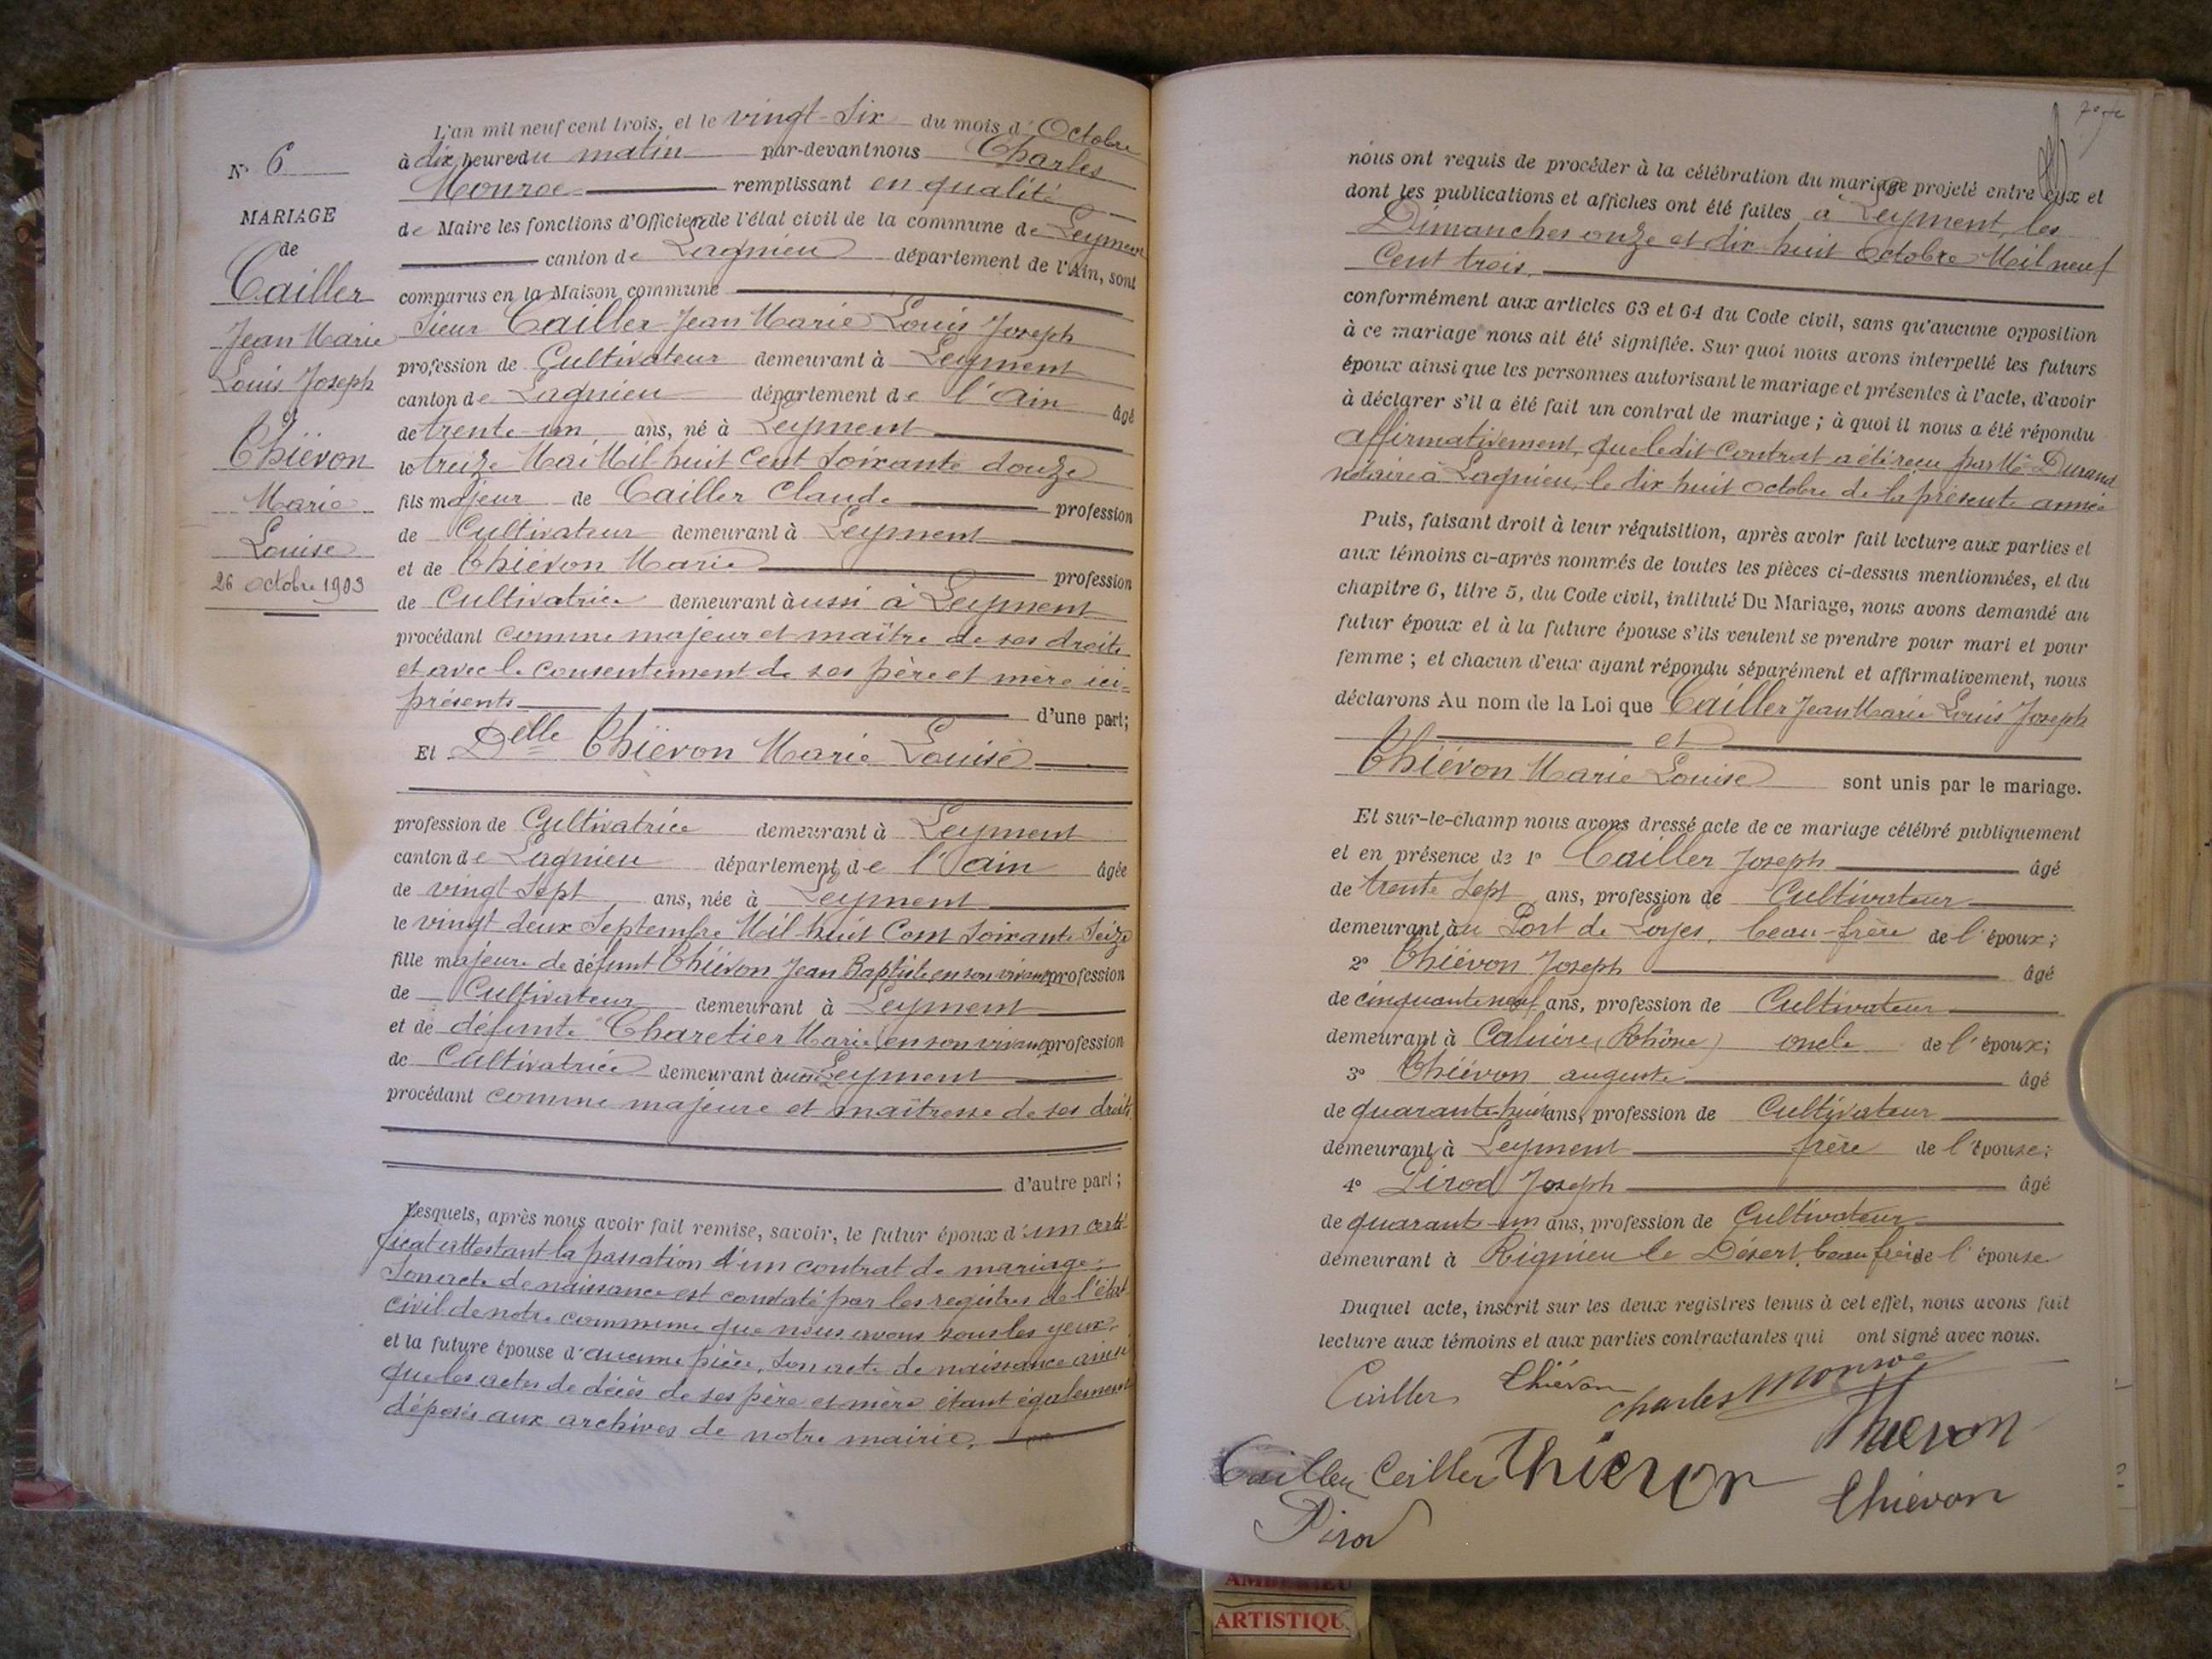 N° 6
MARIAGE
de
Cailler
Jean Marie
Louis Joseph
Thiévon
Marie
Louise
26 Octobre 1903
L'an mil neuf cent trois, et le vingt-Six du mois d'Octobre
à dix heures du matin par-devant nous Charles
Monroe remplissant en qualité
de Maire les fonctions d'Officier de l'état civil de la commune de Leyment
canton de Lagnieu département de l'Ain, sont
comparus en la Maison commune
Sieur Cailler Jean Marie Louis Joseph
profession de Cultivateur demeurant à Leyment
canton de Lagnieu département de l'Ain âgé
de trente-un ans, né à Leyment
le treize Mai Mil-huit Cent Soixante douze
fils majeur de Cailler Claude profession
de Cultivateur demeurant à Leyment
et de Thiévon Marie profession
de Cultivatrice demeurant aussi à Leyment
procédant comme majeur et maître de ses droits
et avec le consentement de ses père et mère ici-
présents d'une part;
Et Delle Thiévon Marie Louise
profession de Cultivatrice demeurant à Leyment
canton de Lagnieu département de l'Ain âgée
de vingt Sept ans, née à Leyment
le vingt deux Septembre Mil-huit Cent Soixante Seize
fille majeure de défunt Thiévon Jean Baptiste en son vivant profession
de Cultivateur demeurant à Leyment
et de défunte Charetier Marie en son vivant profession
de Cultivatrice demeurant aussi Leyment
procédant comme majeure et maîtresse de ses droits
d'autre part;
Lesquels, après nous avoir fait remise, savoir, le futur époux d'un certi-
ficat attestant la passation d'un contrat de mariage;
Son acte de naissance est constaté par les registres de l'état
civil de notre commune que nous avons sous les yeux,
et la future épouse d'aucune pièce, son acte de naissance ainsi
que les actes de décès de ses père et mère étant également
déposés aux archives de notre mairie.
nous ont requis de procéder à la célébration du mariage projeté entre eux et
dont les publications et affiches ont été faites à Leyment, les
Dimanches onze et dix huit Octobre Mil neuf
Cent trois.
conformément aux articles 63 et 64 du Code civil, sans qu'aucune opposition
à ce mariage nous ait été signifiée. Sur quoi nous avons interpellé les futurs
époux ainsi que les personnes autorisant le mariage et présentes à l'acte, d'avoir
à déclarer s'il a été fait un contrat de mariage; à quoi il nous a été répondu
affirmativement, que ledit Contrat a été reçu par Me Durand
notaire à Lagnieu, le dix huit Octobre de la présente année
Puis, faisant droit à leur réquisition, après avoir fait lecture aux parties et
aux témoins ci-après nommés de toutes les pièces ci-dessus mentionnées, et du
chapitre 6, titre 5, du Code civil, intitulé Du Mariage, nous avons demandé au
futur époux et à la future épouse s'ils veulent se prendre pour mari et pour
femme; et chacun d'eux ayant répondu séparément et affirmativement, nous
déclarons Au nom de la Loi que Cailler Jean Marie Louis Joseph
et
Thiévon Marie Louise sont unis par le mariage.
Et sur-le-champ nous avons dressé acte de ce mariage célébré publiquement
et en présence de 1° Cailler Joseph âgé
de trente Sept ans, profession de Cultivateur
demeurant au Port de Loyes, beau-frère de l'époux;
2° Thiévon Joseph âgé
de cinquante neuf ans, profession de Cultivateur
demeurant à Caluire (Rhône) oncle de l'époux;
3° Thiévon auguste âgé
de quarante-huit ans, profession de Cultivateur
demeurant à Leyment frère de l'épouse;
4° Pirod Joseph âgé
de quarante-un ans, profession de Cultivateur
demeurant à Rignieu le Désert, beau frère de l'épouse
Duquel acte, inscrit sur les deux registres tenus à cet effet, nous avons fait
lecture aux témoins et aux parties contractantes qui ont signé avec nous.
Cailler Thiévon Charles Monroe
Thievon
Cailler Cailler Thievon
Thievon
Pirod
AMBERIEU
ARTISTIQU